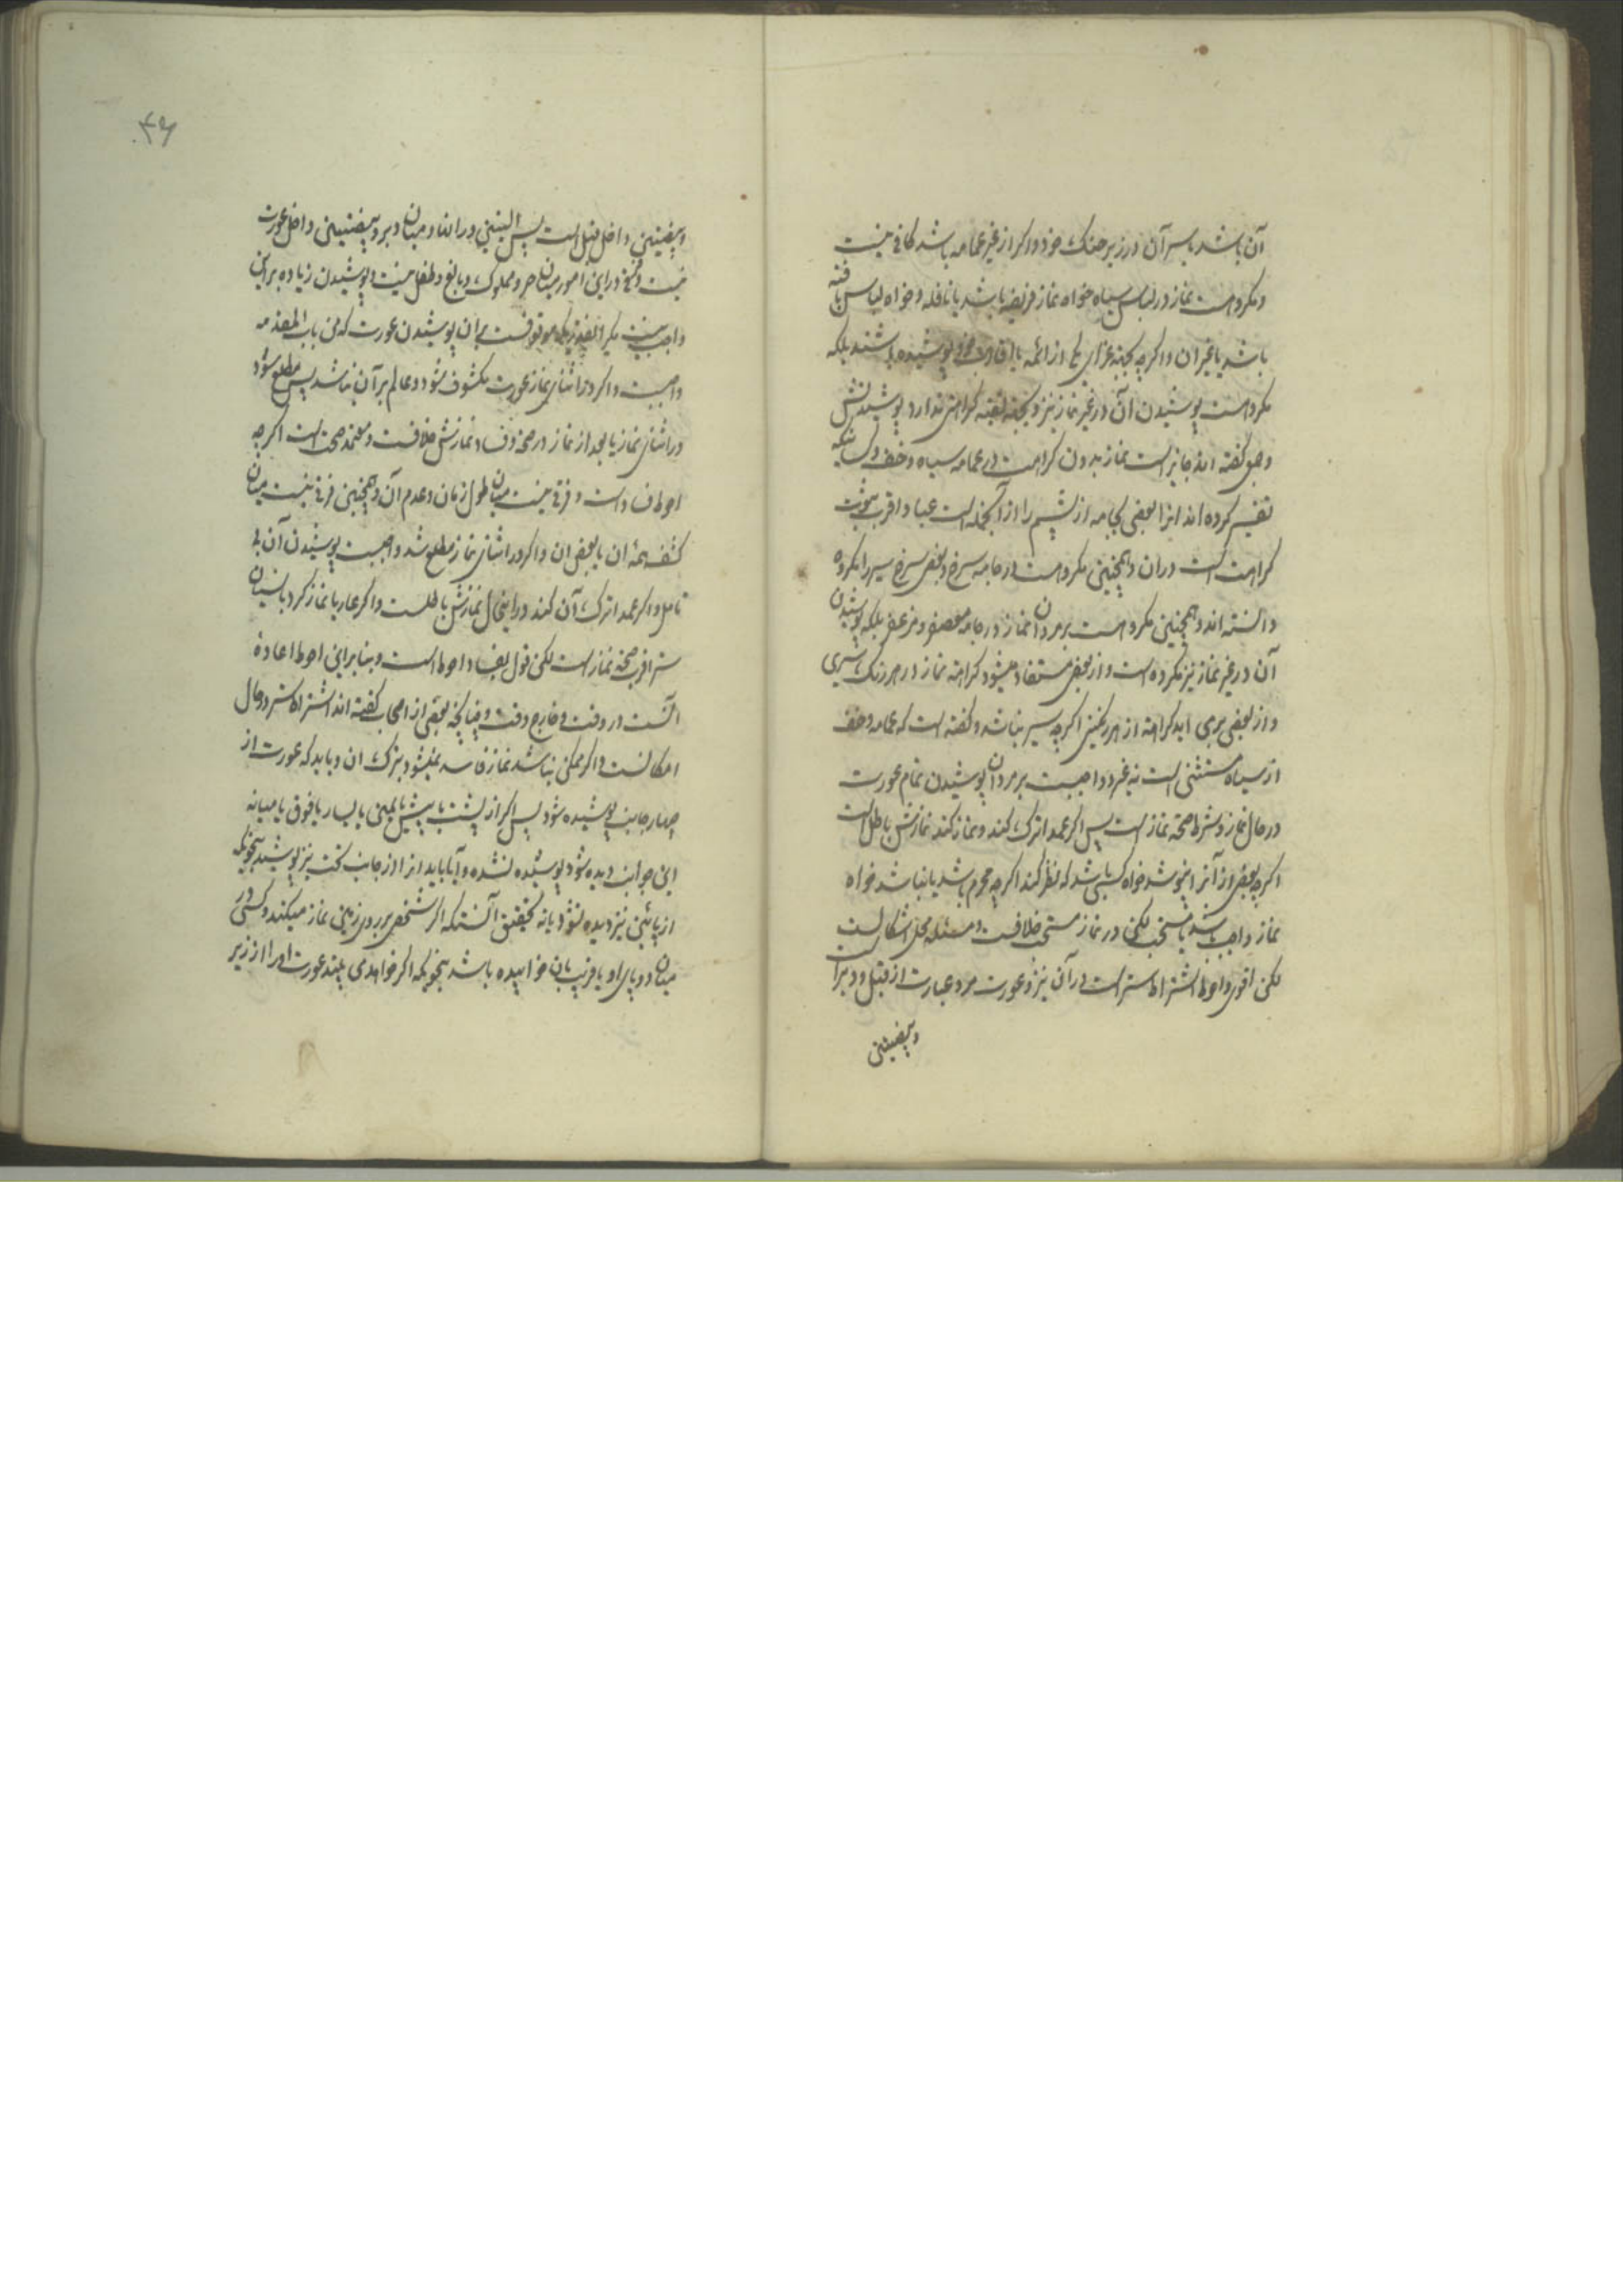 آن باشد یا سر آن در زیر حنک خود و اکر از غیر عمامه باشد کافی نیست
و مکروهست نماز در لباس سیاه خواه نماز فریضه باشد یا نافله و خواه لباس بافته
باشد یا غیر آن و اکرچه بجهة عزای یکی از ائمه یا اقارب خود پوشیده باشند بلکه
مکروهست پوشیدن آن در غیر نماز نیز و بجهة تقیه کراهتی ندارد پوشیدنش
و جمعی کفته اند جایز است نماز بدون کراهت در عمامه سیاه و خف و کسائیکه
تفسیر کرده اند انرا بعضی بجامه از پشم را از آنجمله است عبا و اقرب ثبوت
کراهت است در ان و همچنین مکروهست در جامه سرخ و بعضی سرخ سیر را مکروه
دانسته اند و همچنین مکروهست بر مردان نماز در جامه معصفر و مزعفر بلکه پوشیدن
آن در غیر نماز نیز مکروه است و از بعضی مستفاد میشود کراهة نماز در هر رنک سیری
و از بعضی برمی اید کراهة از هر رنکینی اکرچه سیر نباشد و کفته است که عمامه و خف
از سیاه مستثنی است نه غیر و واجبست بر مردان پوشیدن تمام عورت
در حال نماز و شرط صحة نماز است پس اکر عمدا ترک کند و نماز کند نمازش باطل است
اکرچه بعضی از آنرا نپوشد خواه کسی باشد که نظر کند اکرچه محرم باشد یا نباشد خواه
نماز واجب باشد یا مستحب لکن در نماز مستحب خلافست و مسئله محل اشکالست
لکن اقوی و احوط اشتراط ستر است در آن نیز و عورت مرد عبارت از قبل و دبر است
و بیضیتین
۴۶
و بیضیتین داخل قبل است پس الیتین و رانها و میان دبر و بیضیتین داخل عورت
نیست و فرقی در این امور میان حر و مملوک و بالغ و طفل نیست و پوشیدن زیاده بر این
واجب نیست مکر انقدریکه موقوفست بر ان پوشیدن عورت که من باب المقدمه
واجبست و اکر در اثنای نماز عورت مکشوف شود و عالم بر آن نباشد پس مطلع شود
در اثنای نماز یا بعد از نماز در صحة و فساد نمازش خلافست و معتمد صحت است اکرچه
احوط فساد است و فرقی نیست میان طول زمان و عدم آن و همچنین فرقی نیست میان
کشف همه ان یا بعض ان و اکر در اثنای نماز مطلع شد واجبست پوشیدن آن بی
تامل و اکر عمدا ترک آن کند در اینحال نمازش باطلست و اکر عاریا نماز کرد با نسیان
ستر اقرب صحة نماز است لکن قول بفساد احوط است و بنابراین احوط اعادهٔ
آنست در وقت و خارج وقت و چنانچه بعضی از اصحاب کفته اند اشتراط ستر در حال
امکانست و اکر ممکن نباشد نماز فاسد نمیشود بترک ان و باید که عورت از
چهار جانب پوشیده شود پس اکر از پشت یا پیش یا یمین یا یسار یا فوق یا میانه
این جوانب دیده شود پوشیده نشده و آیا باید انرا از جانب تحت نیز پوشید بنحویکه
از پائین نیز دیده نشود یا نه تحقیق آنستکه اکر شخصی بر روی زمین نماز میکند و کسی در
میان دو پای او یا قریب بان خوابیده باشد بنحویکه اکر خواهد می بیند عورت او را از زیر